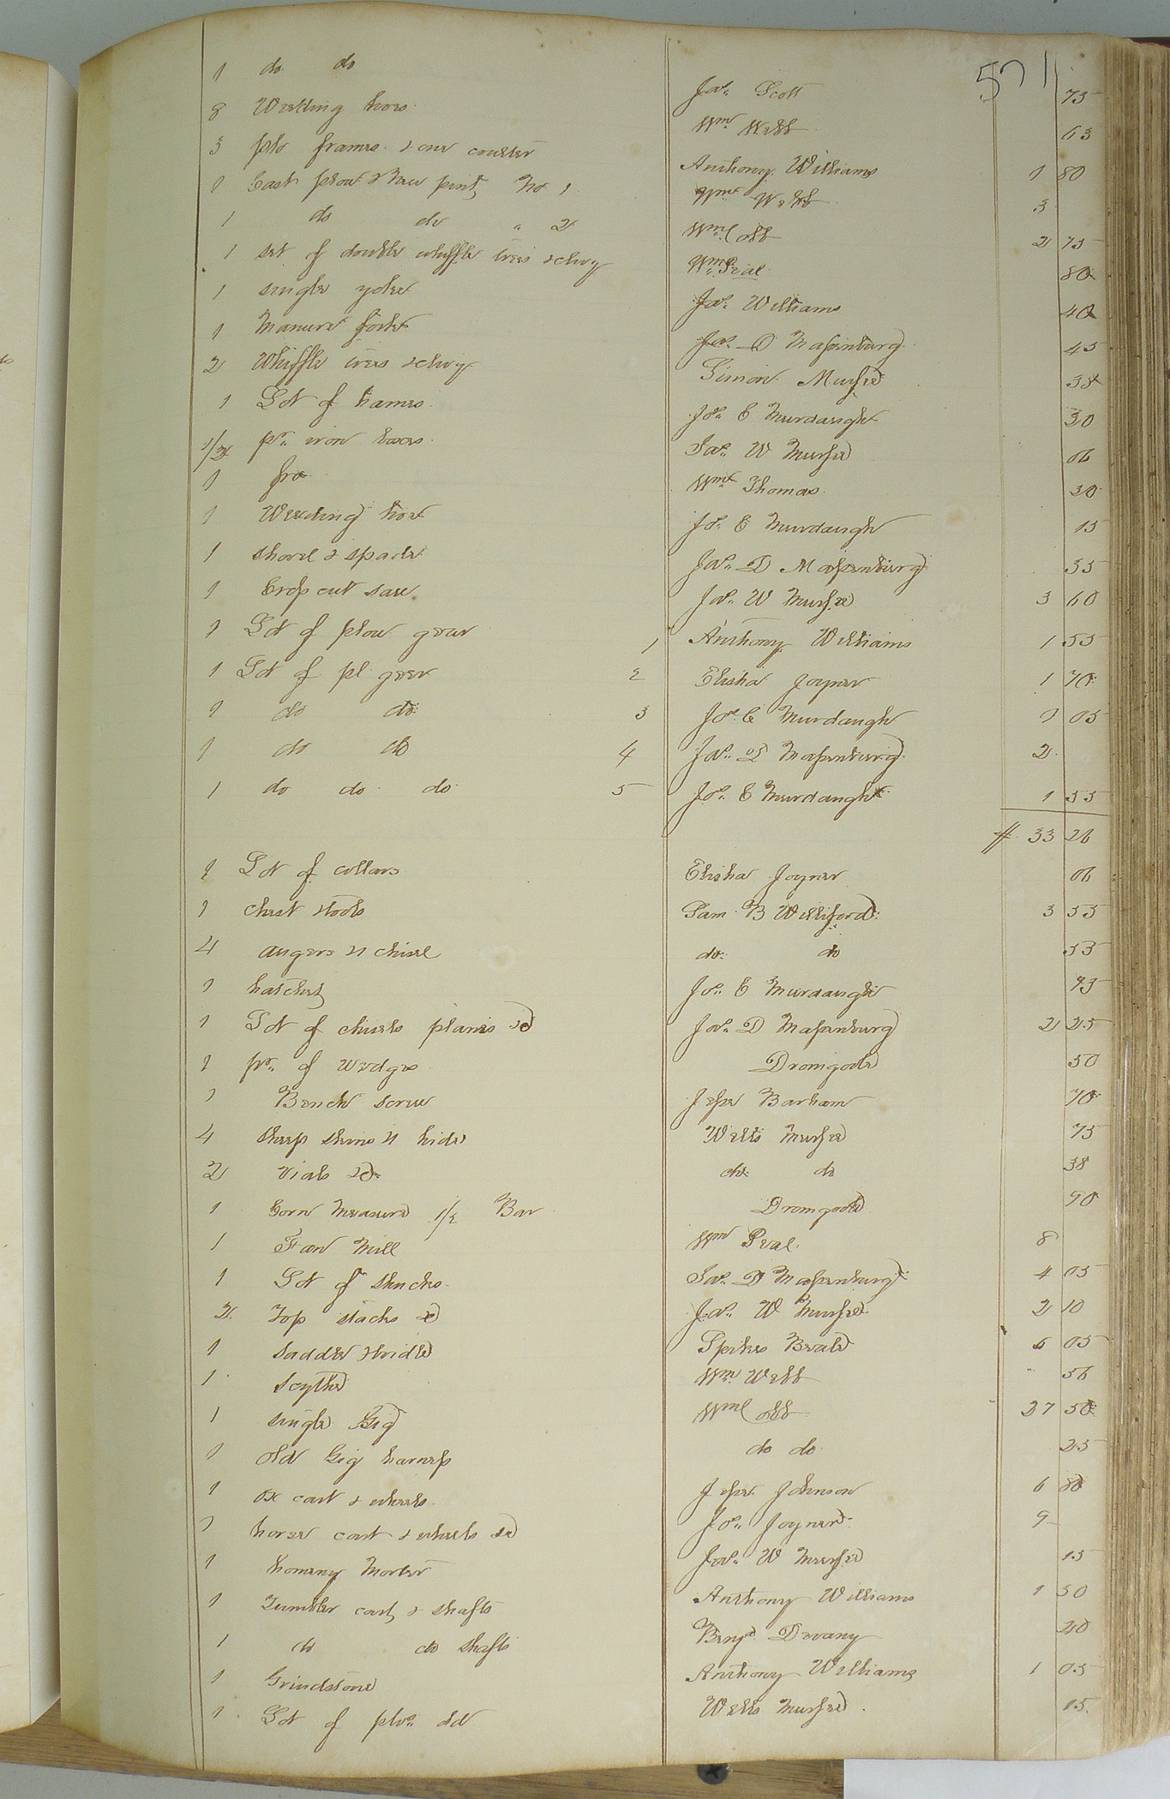 571
1 do do Jas. Scott 75
8 Weeding hoes Wm Webb 63
3 plo frames & one coulter Anthony Williams 1 80
1 Cast plow & New point No 1 Wm Webb 3
1 do do " 2 Wm Cobb 2 75
1 set of double whiffle trees & clevy Wm Peal 80
1 single yoke Jas. Williams 40
1 Manure fork Jas. D Massenburg 45
2 Whiffle trees & clevy Simion Murfee
1 Lot of hames Jos. E Murdaugh 30
pr. iron Jas. W Murfee 06
1 fro Wm Thomas 30
1 Weeding hoe Jos. E Murdaugh 15
1 shovel & spade Jas. D Massenburg 55
1 Cross cut saw Jas. W Murfee 3 60
1 Lot of plow gear 1 Anthony Williams 1 55
1 Lot of pl gear 2 Elisha Joyner 1 70
1 do do 3 Jos. E Murdaugh 1 05
1 do do 4 Jas. D Massenburg 2
1 do do do 5 Jos. E Murdaugh 1 55
$ 33 26
1 Lot of collars Elisha Joyner 06
1 chest & tools Sam B Williford 3 55
4 augers & chisel do do 55
1 hatchet Jos. E Murdaugh
1 Lot of chisels planes &c Jas. D Massenburg 2 25
1 pr. of wedges Dromgoole 50
1 Bench screw Jesse Barham 70
4 sheep skins & hide Wells Murfee 75
2 vials &c do do 38
1 Corn Measure 1/2 Bar Dromgoole 90
1 Fan Mill Wm Peal 8
1 Lot of shucks Jas. D Massenburg 4 05
Top stacks &c Jas. W Murfee 2 10
1 Saddle & bridle Spikes Beale 6 05
1 Scythe Wm Webb 56
1 single Gig Wm Cobb 27 50
1 old Gig harness do do 25
1 ox cart & wheels Jesse Johnson 6
1 horse cart & wheels &c Jos. Joyner 9
1 hominy Morter Jas. W Murfee 15
1 Tumbler cart & shafts Anthony Williams 1 50
1 do do shafts Benj. Devany 40
1 Grindstone Anthony Williams 1 05
1 Lot of Wells Murfee 15